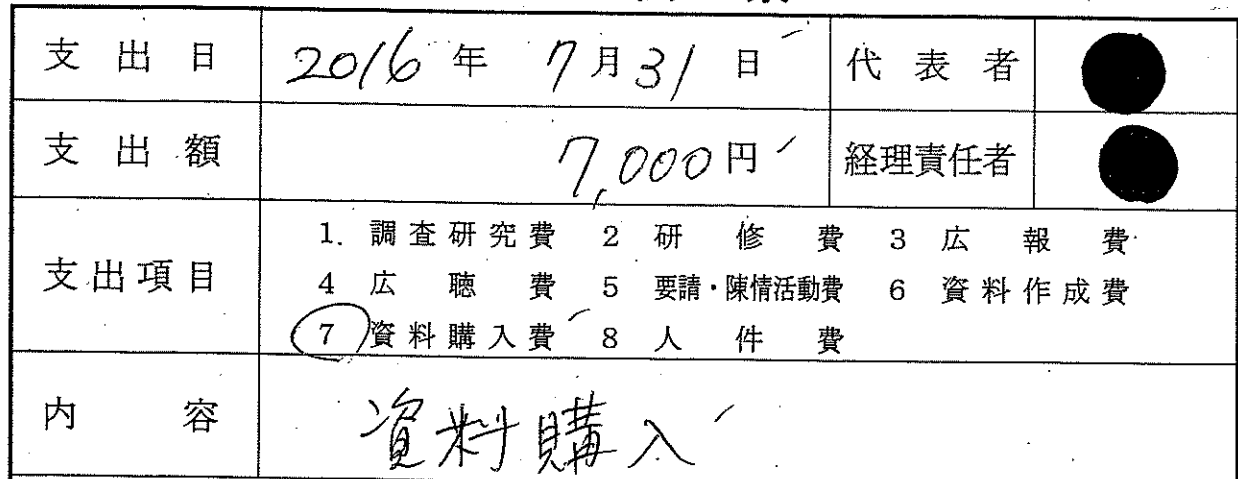 支出日 2016年 7月31日 代表者
支出額 7,000円 経理責任者
支出項目 1. 調査研究費 2 研修費 3 広報費
4 広聴費 5 要請・陳情活動費 6 資料作成費
7 資料購入費 8 人件費
内容 資料購入